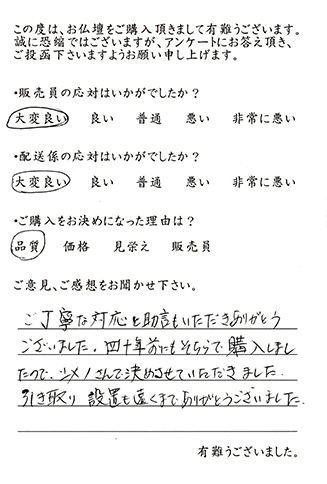 この度は、お仏壇をご購入頂きまして有難うございます。
誠に恐縮ではございますが、アンケートにお答え頂き、
ご投函下さいますようお願い申し上げます。
・販売員の応対はいかがでしたか？
大変良い 良い 普通 悪い 非常に悪い
・配送係の応対はいかがでしたか？
大変良い 良い 普通 悪い 非常に悪い
・ご購入をお決めになった理由は？
品質 価格 見栄え 販売員
ご意見、ご感想をお聞かせ下さい。
ご丁寧な対応と助言もいただきありがとう
ございました。四十年前にもそちらで購入しまし
たので、ツメノさんで決めさせていただきました。
引き取り 設置も遠くまでありがとうございました。
有難うございました。